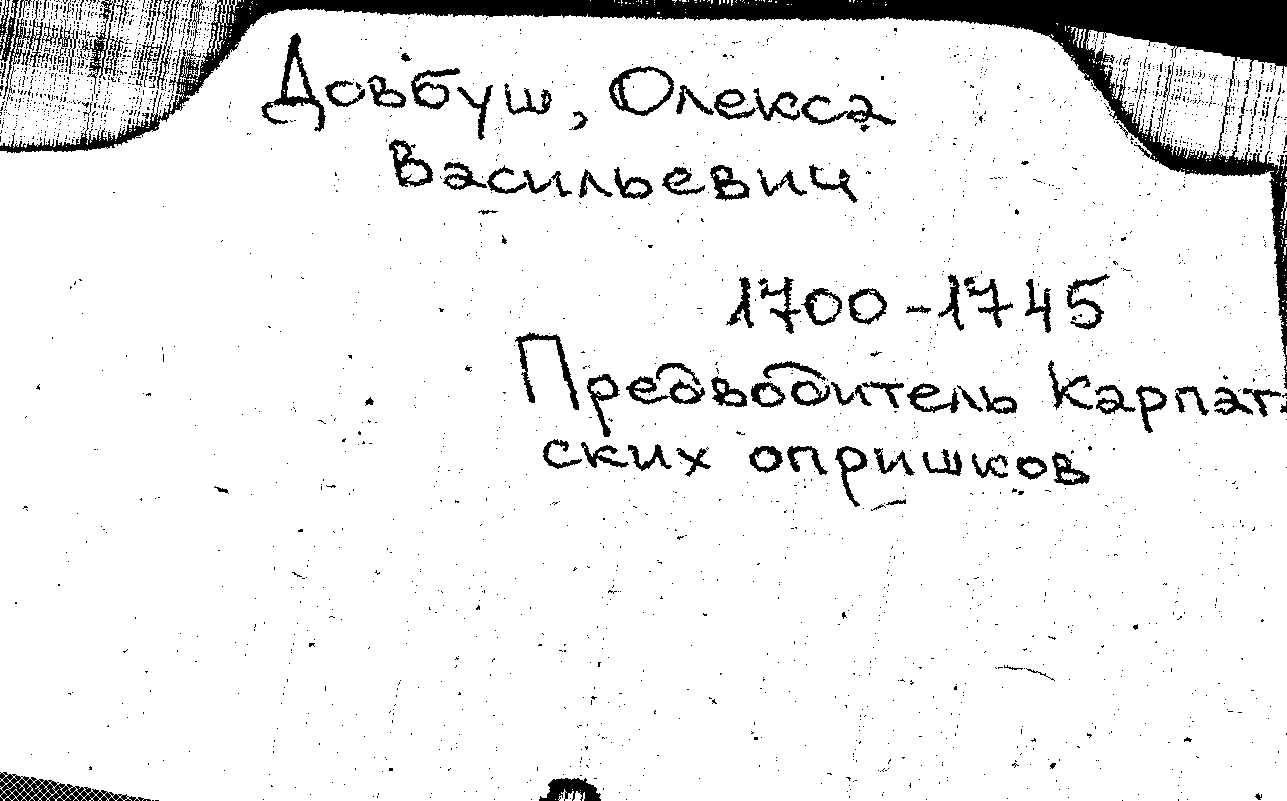 Довбуш, Олекса
Васильевич
1700-1745
Предводитель Карпат-
ских опришков